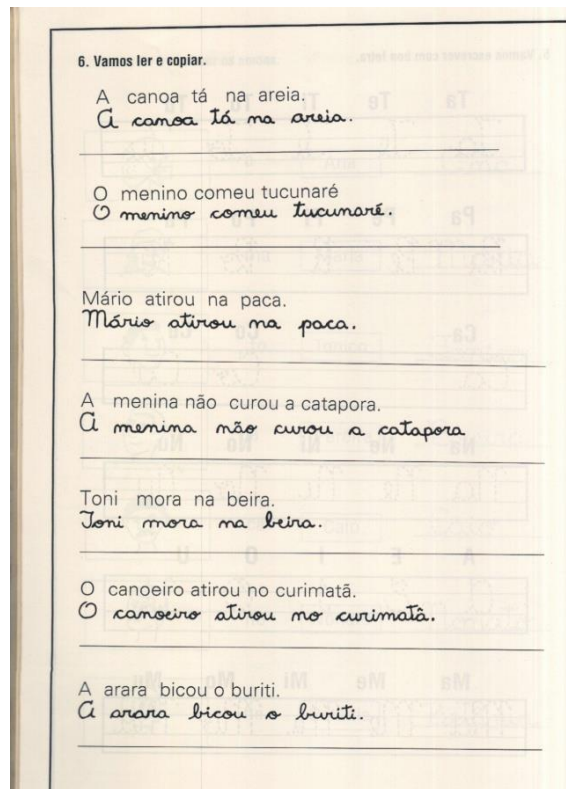 6. Vamos ler e copiar.
A canoa tá na areia.
A canoa tá na areia.
O menino comeu tucunaré
O menino comeu tucunaré.
Mário atirou na paca.
Mário atirou na paca.
A menina não curou a catapora.
A menina não curou a catapora
Toni mora na beira.
Toni mora na beira.
O canoeiro atirou no curimatã.
O canoeiro atirou no curimatã.
A arara bicou o buriti.
A arara bicou o buriti.